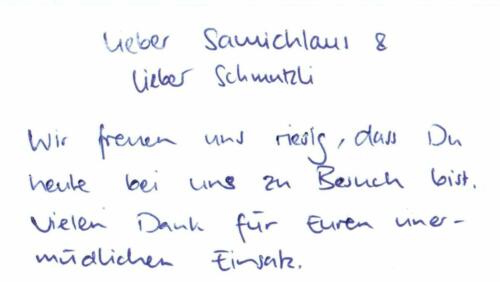 Lieber Samichlaus &
Lieber Schmutzli
Wir freuen uns riesig, dass Du
heute bei uns zu Besuch bist.
Vielen Dank für Euren uner-
müdlichen Einsatz.